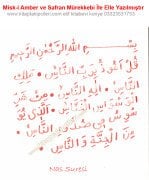 Misk-i Amber ve Safran Mürekkebi İle Elle Yazılmıştır
بسم الله الرحمن الرحيم
قُلْ أَعُوذُ بِرَبِّ النَّاسِ
مَلِكِ النَّاسِ إِلَهِ النَّاسِ مِنْ شَرِّ
الْوَسْوَاسِ الْخَنَّاسِ الَّذِي يُوَ
سْوِسُ فِي صُدُورِ النَّاسِ
مِنَ الْجِنَّةِ وَ النَّاسِ
Nas Suresi